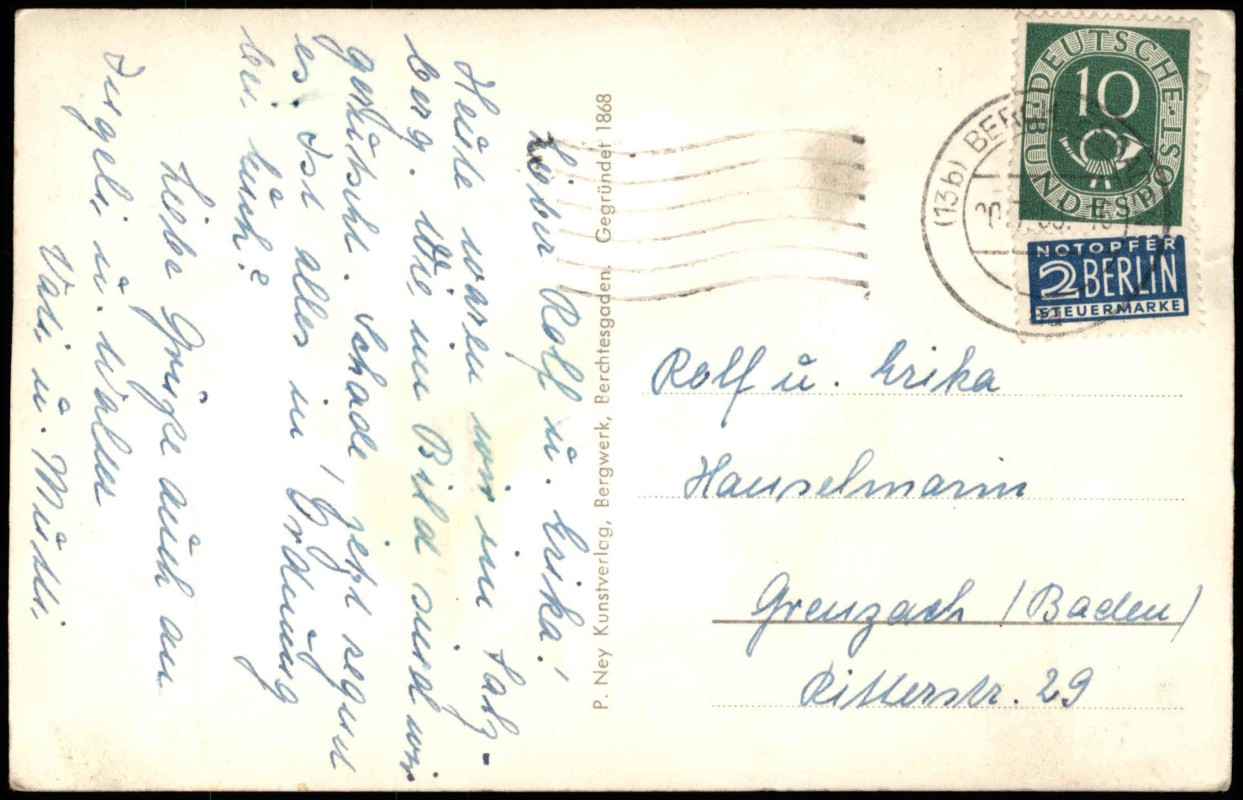 Lieber Rolf u. Erika!
Heute waren wir im Salz-
berg. Wie im Bild sind wir
gerutscht. Schade, jetzt regnet
es. Ist alles in Ordnung
bei Euch?
Liebe Grüße auch an
u. Walter
Vati u. Mutti.
P. Ney Kunstverlag, Bergwerk, Berchtesgaden. Gegründet 1868
(13b) BERCH
DEUTSCHE BUNDESPOST
10
NOTOPFER
2 BERLIN
STEUERMARKE
Rolf u. Erika
Hauselmann
Grenzach (Baden)
Ritterstr. 29